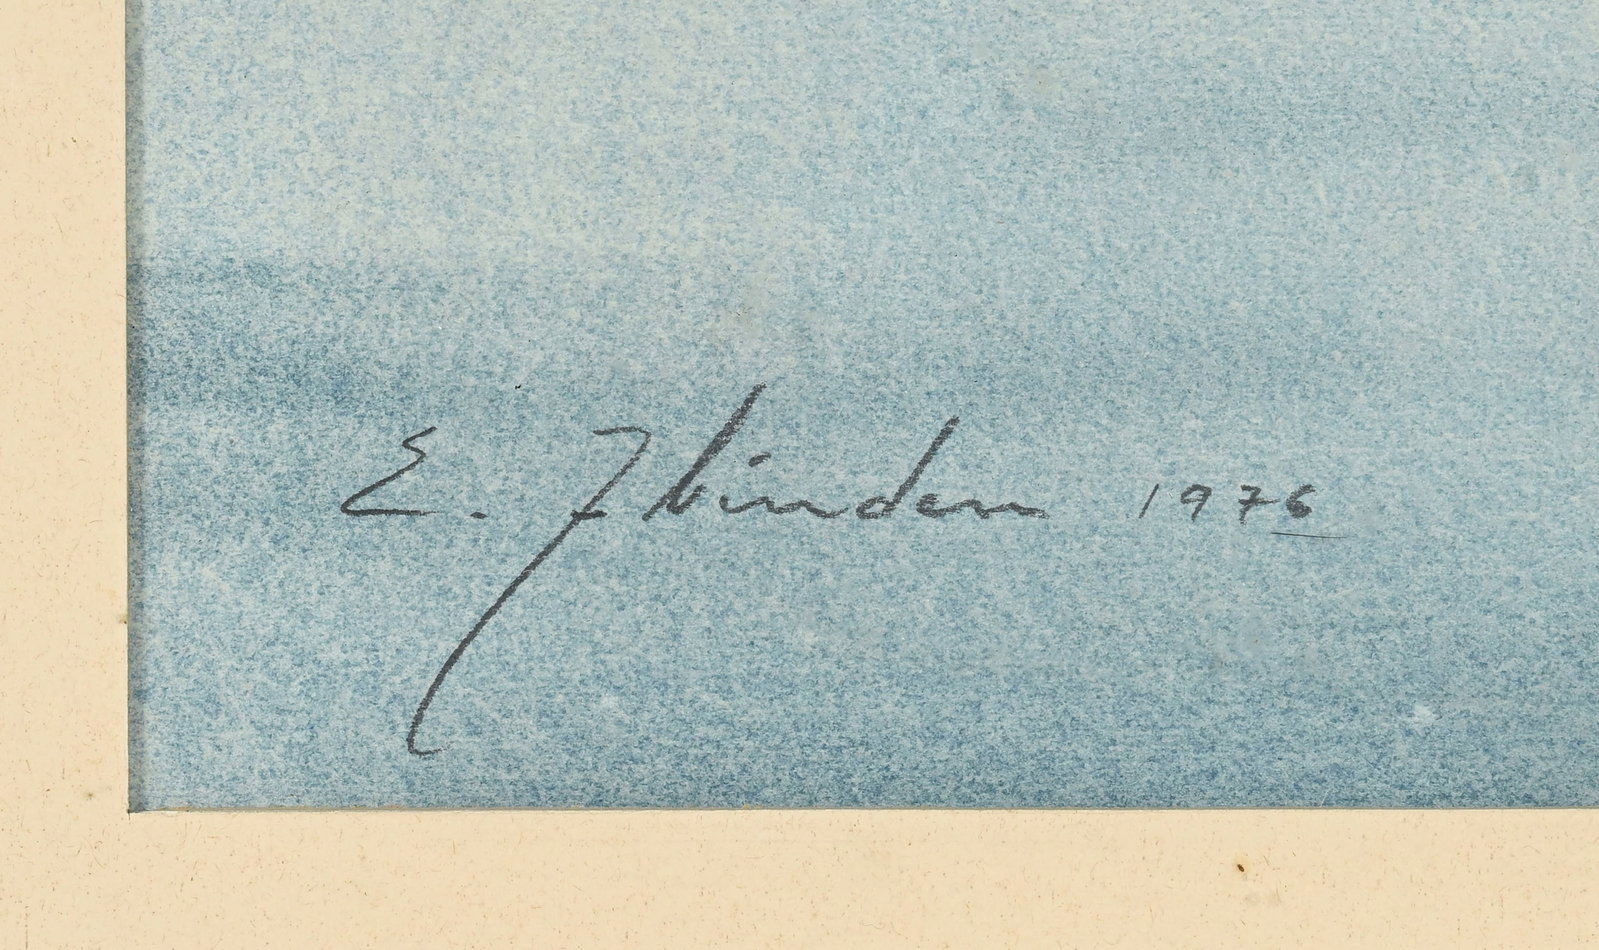 E. Zbinden 1976